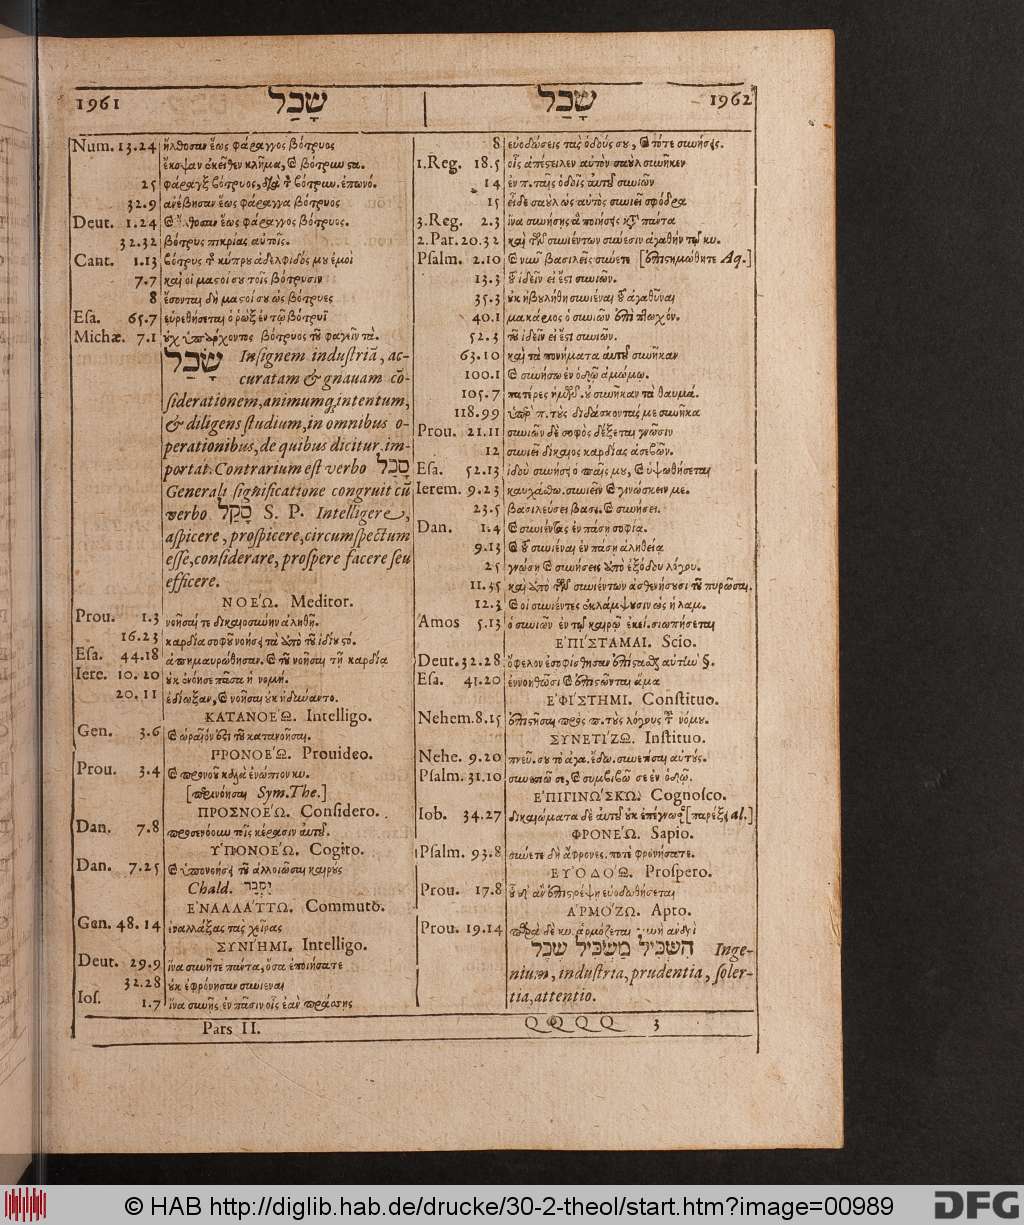 1961 שָׂכַל
שָׂכַל 1962
Num. 13.24 ἤλθοσαν ἕως φάραγγος βότρυος
ἔκοψαν ἐκεῖθεν κλῆμα, καὶ βότρυν
25 φάραγξ βότρυος, διὰ τὸν βότρυν
32.9 ἀνέβησαν ἕως φάραγγα βότρυος
Deut. 1.24 καὶ ἤλθοσαν ἕως φάραγγος βότρυος.
32.32 βότρυς πικρίας αὐτοῖς.
Cant. 1.13 βότρυς τῆς κύπρου ἀδελφιδός μου ἐμοὶ
7.7 καὶ οἱ μαστοί σου τοῖς βότρυσιν
8 ἔσονται δὴ μαστοί σου ὡς βότρυες
Esa. 65.7 εὑρεθήσεται ὁ ῥὼξ ἐν τῷ βότρυϊ
Michæ. 7.1 οὐχ ὑπάρχοντος βότρυος τοῦ φαγεῖν τὰ.
שָׂכַל Insignem industriã, ac-
curatam & gnauam cõ-
siderationem, animumq; intentum,
& diligens studium, in omnibus o-
perationibus, de quibus dicitur, im-
portat. Contrarium est verbo סָכַל
Generali significatione congruit cũ
verbo סָקַל S. P. Intelligere,
aspicere, prospicere, circumspectum
esse, considerare, prospere facere seu
efficere.
ΝΟΕΏ. Meditor.
Prou. 1.3 νοῆσαί τε δικαιοσύνην ἀληθῆ.
16.23 καρδία σοφοῦ νοήσει τὰ ἀπὸ τοῦ ἰδίου στό.
Esa. 44.18 ἀπημαυρώθησαν. καὶ τοῦ νοῆσαι τῇ καρδίᾳ
Iere. 10.20 οὐκ ἐνόησε πᾶσα ἡ νομή.
20.11 ἐδίωξαν, καὶ νοῆσαι οὐκ ἠδύναντο.
ΚΑΤΑΝΟΕΏ. Intelligo.
Gen. 3.6 καὶ ὡραῖόν ἐστι τοῦ κατανοῆσαι.
ΠΡΟΝΟΕΏ. Prouideo.
Prou. 3.4 καὶ προνοοῦ καλὰ ἐνώπιον κυ.
Sym. The.]
ΠΡΟΣΝΟΕΏ. Considero.
Dan. 7.8 προσενόουν τοῖς κέρασιν αὐτοῦ.
ΥΠΟΝΟΕΏ. Cogito.
Dan. 7.25 καὶ ὑπονοήσει τοῦ ἀλλοιῶσαι καιροὺς
Chald. יִסְבַּר
ΕΝΑΛΛΑΤΤΩ. Commuto.
Gen. 48.14 ἐναλλάξας τὰς χεῖρας
ΣΥΝΙΗΜΙ. Intelligo.
Deut. 29.9 ἵνα συνῆτε πάντα, ὅσα ἐποιήσατε
32.28 οὐκ ἐφρόνησαν συνιέναι
Ios. 1.7 ἵνα συνῇς ἐν πᾶσιν οἷς ἐὰν πράσσῃς
8 εὐοδώσεις τὰς ὁδούς σου, καὶ τότε συνήσεις.
1.Reg. 18.5 οἷς ἀπέστειλεν αὐτὸν σαοὺλ συνῆκεν
14 ἐν π. ταῖς ὁδοῖς αὐτοῦ συνιῶν
15 εἶδε σαοὺλ ὡς αὐτὸς συνιεῖ σφόδρα
3.Reg. 2.3 ἵνα συνήσῃς ἃ ποιήσεις κατὰ πάντα
2.Par. 20.32 καὶ τῶν συνιέντων σύνεσιν ἀγαθὴν τῷ κυ.
Psalm. 2.10 καὶ νῦν βασιλεῖς σύνετε [ἐπιστημώθητε Aq.]
13.3 τοῦ ἰδεῖν εἰ ἔστι συνιῶν.
35.3 οὐκ ἠβουλήθη συνιέναι τοῦ ἀγαθῦναι
40.1 μακάριος ὁ συνιῶν ἐπὶ πτωχόν.
52.3 τοῦ ἰδεῖν εἰ ἔστι συνιῶν.
63.10 καὶ τὰ ποιήματα αὐτοῦ συνῆκαν
100.1 καὶ συνήσω ἐν ὁδῷ ἀμώμῳ.
105.7 πατέρες ἡμῶν. οὐ συνῆκαν τὰ θαυμά.
118.99 ὑπὲρ π. τοὺς διδάσκοντάς με συνῆκα
Prou. 21.11 συνιῶν δὲ σοφὸς δέξεται γνῶσιν
12 συνιεῖ δίκαιος καρδίας ἀσεβῶν.
Esa. 52.13 ἰδοὺ συνήσει ὁ παῖς μου, καὶ ὑψωθήσεται
Ierem. 9.23 καυχάσθω. συνιεῖν καὶ γινώσκειν με.
23.5 βασιλεύσει βασι. καὶ συνήσει.
Dan. 1.4 καὶ συνιέντας ἐν πάσῃ σοφία.
9.13 καὶ τοῦ συνιέναι ἐν πάσῃ ἀληθείᾳ
25 γνώσῃ καὶ συνήσεις ἀπὸ ἐξόδου λόγου.
11.35 καὶ ἀπὸ τῶν συνιέντων ἀσθενήσουσι τοῦ πυρῶσαι.
12.3 καὶ οἱ συνιέντες ἐκλάμψουσιν ὡς ἡ λαμ.
Amos 5.13 ὁ συνιῶν ἐν τῷ καιρῷ ἐκεί. σιωπήσεται
ΕΠΙΣΤΑΜΑΙ. Scio.
Deut. 32.28 §.
Esa. 41.20 ἐννοηθῶσι καὶ ἐπιστῶνται ἅμα
ΕΦΙΣΤΗΜΙ. Constituo.
Nehem. 8.15 ἐπιστῆσαι πρὸς π. τοὺς λόγους τοῦ νόμου.
ΣΥΝΕΤΙΖΩ. Instituo.
Nehe. 9.20 πνεῦ. σου τὸ ἀγα. ἔδω. συνετίσαι αὐτούς.
Psalm. 31.10 συνετιῶ σε, καὶ συμβιβῶ σε ἐν ὁδῷ.
ΕΠΙΓΙΝΩΣΚΩ. Cognosco.
Iob. 34.27 δικαιώματα δὲ αὐτοῦ οὐκ ἐπέγνωσαν al.]
ΦΡΟΝΕΏ. Sapio.
Psalm. 93.8 σύνετε δὴ ἄφρονες. ποτὲ φρονήσατε.
ΕΥΟΔΟΏ. Prospero.
Prou. 17.8 οὗ δ' ἂν ἐπιστρέψῃ εὐοδωθήσεται
ΑΡΜΟΖΩ. Apto.
Prou. 19.14 παρὰ δὲ κυ. ἁρμόζεται γυνὴ ἀνδρὶ
הִשְׂכִּיל מַשְׂכִּיל שֶׂכֶל Inge-
nium, industria, prudentia, soler-
tia, attentio.
Pars II.
QQQQ 3
© HAB http://diglib.hab.de/drucke/30-2-theol/start.htm?image=00989
DFG